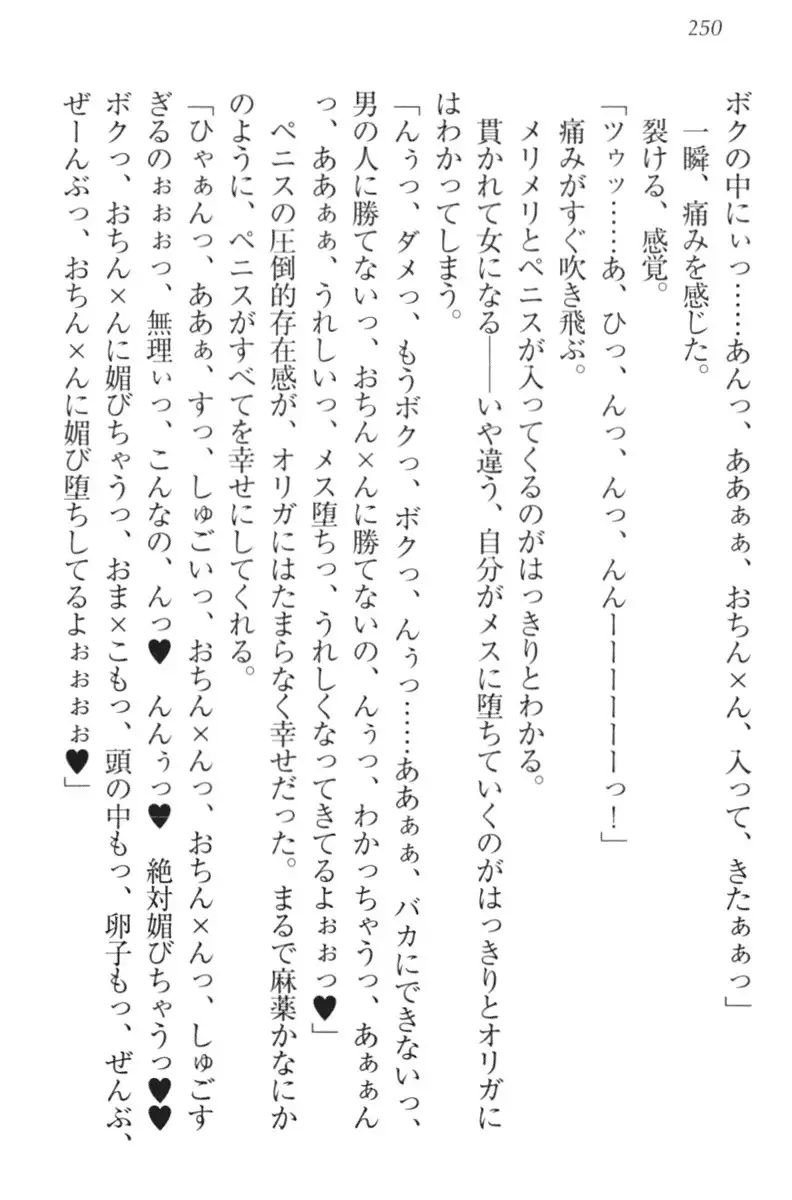 250
ボクの中にぃっ……あんっ、ああぁぁ、おちん×ん、入って、きたぁぁっ」
一瞬、痛みを感じた。
裂ける、感覚。
「ツゥッ……あ、ひっ、んっ、んっ、んんーーーーーーっ！」
痛みがすぐ吹き飛ぶ。
メリメリとペニスが入ってくるのがはっきりとわかる。
貫かれて女になる――いや違う、自分がメスに堕ちていくのがはっきりとオリガに
はわかってしまう。
「んぅっ、ダメっ、もうボクっ、ボクっ、んぅっ……ああぁぁ、バカにできないっ、
男の人に勝てないっ、おちん×んに勝てないの、んぅっ、わかっちゃうっ、あぁぁん
っ、ああぁぁ、うれしいっ、メス堕ちっ、うれしくなってきてるよぉぉっ♥」
ペニスの圧倒的存在感が、オリガにはたまらなく幸せだった。まるで麻薬かなにか
のように、ペニスがすべてを幸せにしてくれる。
「ひゃぁんっ、ああぁ、すっ、しゅごいっ、おちん×んっ、おちん×んっ、しゅごす
ぎるのぉぉぉっ、無理ぃっ、こんなの、んっ♥　んんぅっ♥　絶対媚びちゃうっ♥♥
ボクっ、おちん×んに媚びちゃうっ、おま×こもっ、頭の中もっ、卵子もっ、ぜんぶ、
ぜーんぶっ、おちん×んに媚び堕ちしてるよぉぉぉぉ♥」